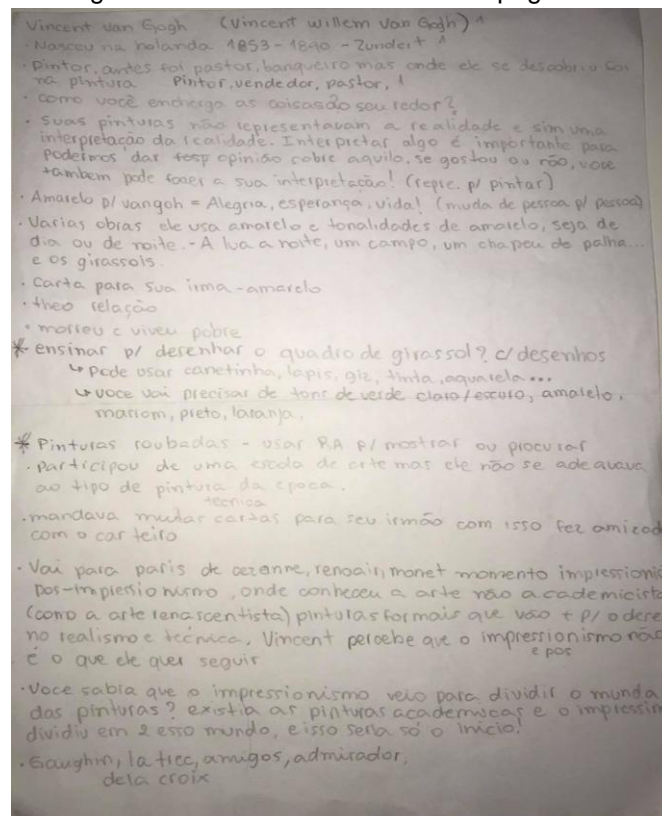 Vincent van Gogh (Vincent willem Van Gogh)
· Nasceu na holanda 1853-1890 - Zundert
· pintor, antes foi pastor, banqueiro mas onde ele se descobriu foi
na pintura Pintor, vendedor, pastor,
· como você encherga as coisas ao seu redor?
· suas pinturas não representavam a realidade e sim uma
interpretação da realidade. Interpretar algo é importante para
podermos dar opinião sobre aquilo, se gostou ou não, voce
tambem pode fazer a sua interpretação! (repre. p/ pintar)
· Amarelo p/ vangoh = Alegria, esperança, vida! (muda de pessoa p/ pessoa)
· Varias obras ele usa amarelo e tonalidades de amarelo, seja de
dia ou de noite. - A lua a noite, um campo, um chapeu de palha...
e os girassois.
· carta para sua irma - amarelo
· theo relação
· morreu e viveu pobre
* ensinar p/ desenhar o quadro de girassol? c/ desenhos
↳ pode usar canetinha, lapis, giz, tinta, aquarela...
↳ voce vai precisar de tons de verde claro/escuro, amarelo,
marrom, preto, laranja,
* Pinturas roubadas - usar RA p/ mostrar ou procurar
· participou de uma escola de arte mas ele não se adequava
ao tipo de pintura da epoca.
tecnica
· mandava muitar cartas para seu irmão com isso fez amizad
com o carteiro
· Vai para paris de cezanne, renoair, monet momento impressionis
pos-impressionismo, onde conheceu a arte não academicista
(como a arte renascentista) pinturas formais que vão + p/ o dese
no realismo e tecnica. Vincent percebe que o impressionismo não
e pos
é o que ele quer seguir
· Voce sabia que o impressionismo veio para dividir o munda
das pinturas? existia as pinturas academicas e o impressin
dividiu em 2 esso mundo, e isso seria só o inicio!
· Gaughin, la trec, amigos, admirador,
dela croix